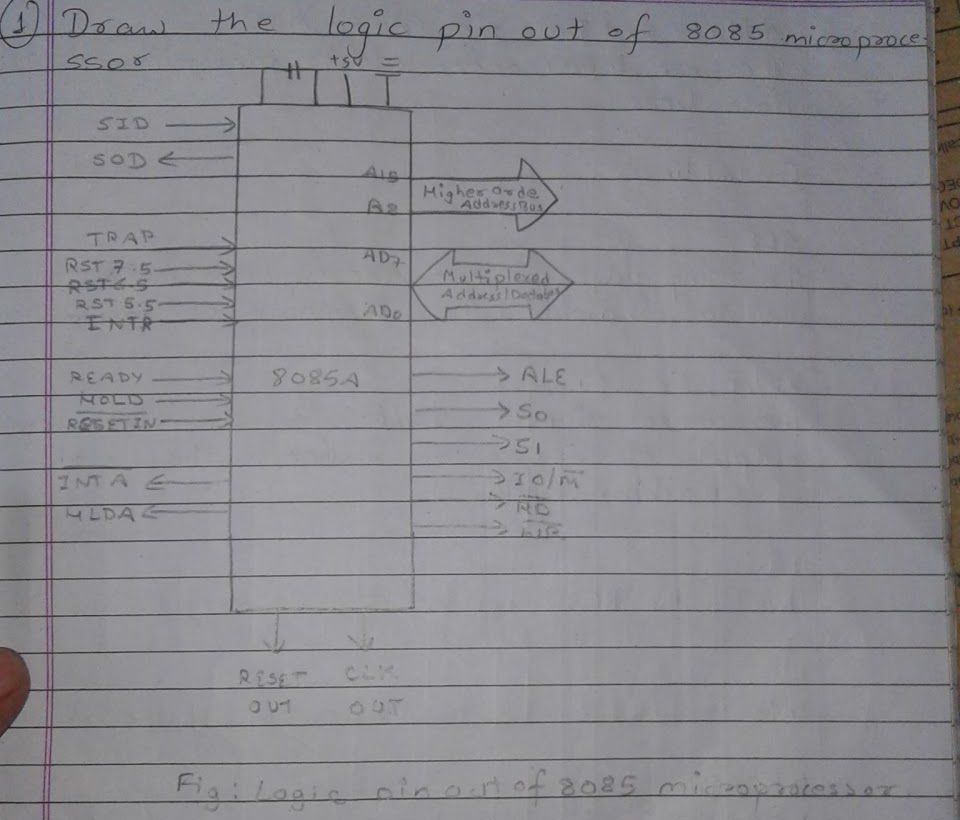 1 Draw the logic pin out of 8085 microproce-
ssor
+5V
SID
SOD
A15
Higher orde
Address Bus
A8
TRAP
AD7
RST 7.5
Multiplexed
RST 6.5
Address/Databus
RST 5.5
AD0
INTR
READY
8085A
ALE
HOLD
S0
RESET IN
S1
INTA
IO/M
HLDA
RD
WR
RESET CLK
OUT OUT
Fig: Logic pin out of 8085 microprocessor